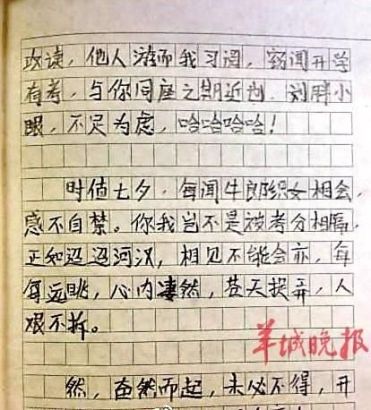 攻读，他人游而我习阅，窃闻开学
有考，与你同座之期近也，刘胖小
眼，不足为虑，哈哈哈哈！
时值七夕，每闻牛郎织女相会，
感不自禁。你我岂不是被考分相隔，
正如迢迢河汉，相见不能会亦，每
每远眺，心内凄然，苍天捉弄，人
艰不拆。
羊城晚报
然，奋然而起，未必不得，开